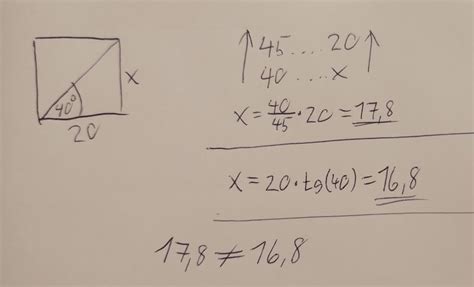 40°
x
20
↑ 45 .... 20 ↑
40 .... x
x = 40/45 · 20 = 17,8
x = 20 · tg(40) = 16,8
17,8 ≠ 16,8